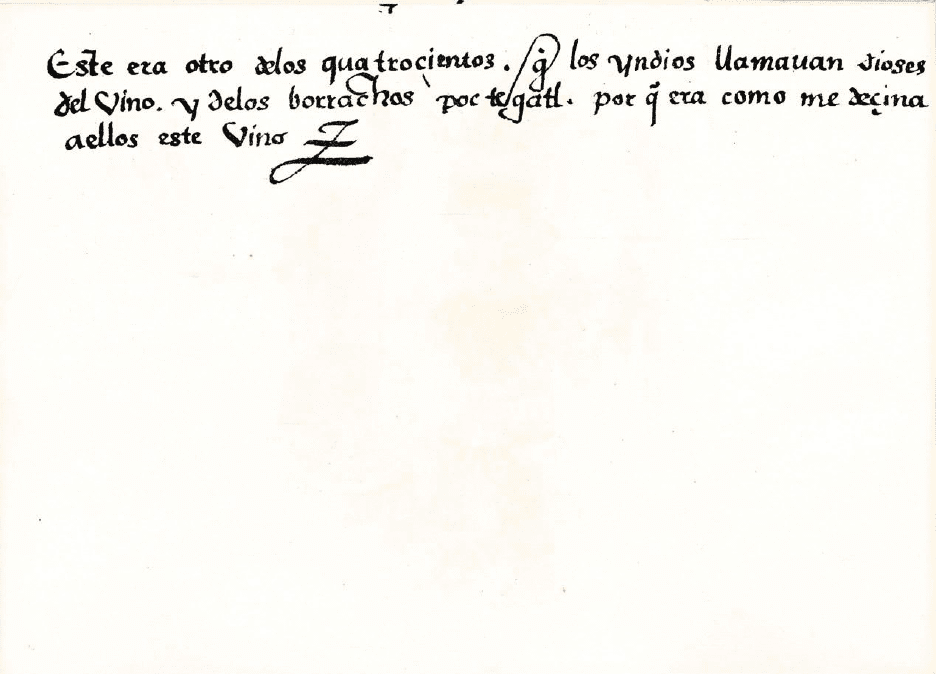 Este era otro delos quatrocientos. q̃ los yndios llamauan dioses
del Vino. y delos borrachos poctegatl. por q̃ era como me deçina
aellos este Vino